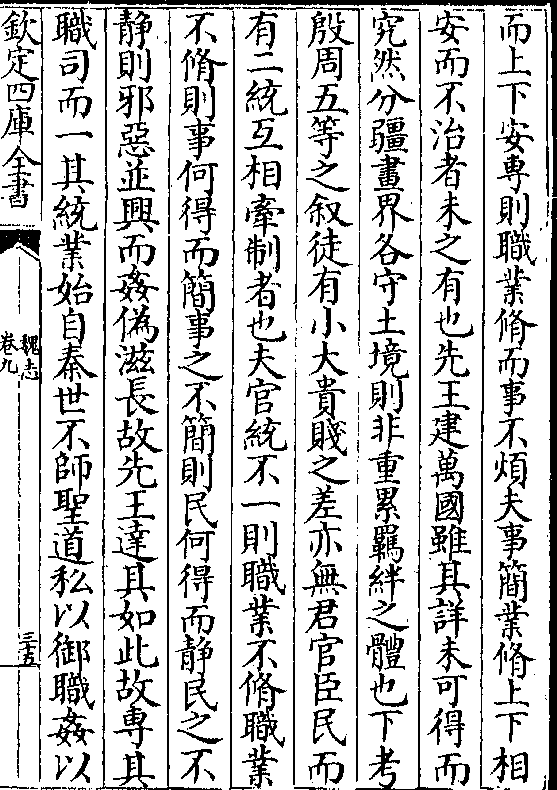 而上下安專則職業脩而事不煩夫事簡業脩上下相
安而不治者未之有也先王建萬國雖其詳未可得而
究然分疆畫界各守土境則非重累羈絆之體也下考
殷周五等之叙徒有小大貴賤之差亦無君官臣民而
有二統互相牽制者也夫官統不一則職業不脩職業
不脩則事何得而簡事之不簡則民何得而静民之不
静則邪惡並興而姦偽滋長故先王達其如此故專其
職司而一其統業始自秦世不師聖道私以御職姦以
欽定四庫全書
魏志
卷九
三十五